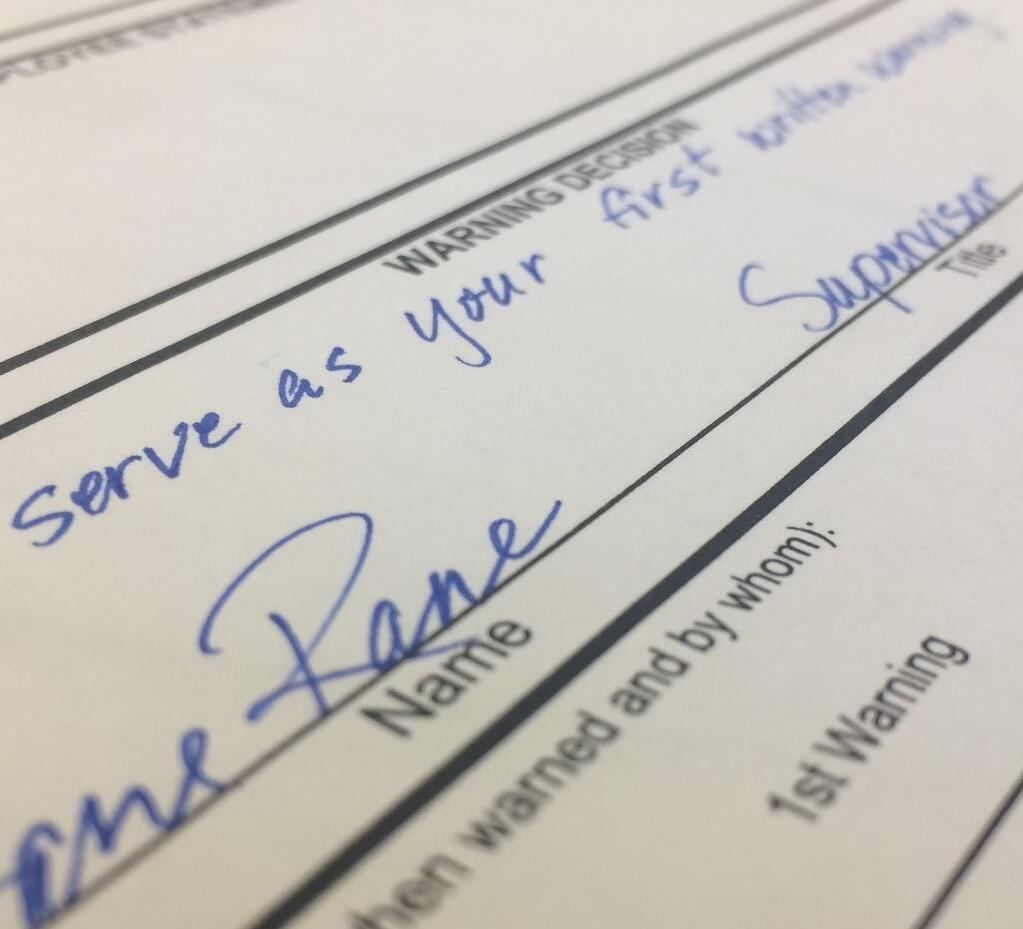 PLOYEE STATEM
WARNING DECISION
serve as your first written warning
ane Rane Supervisor
Name Title
hen warned and by whom):
1st Warning